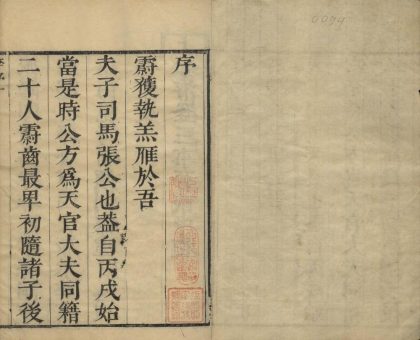 序
霨獲執羔雁於吾
夫子司馬張公也葢自丙戌始
當是時公方爲天官大夫同籍
二十人霨齒最早初隨諸子後
0099